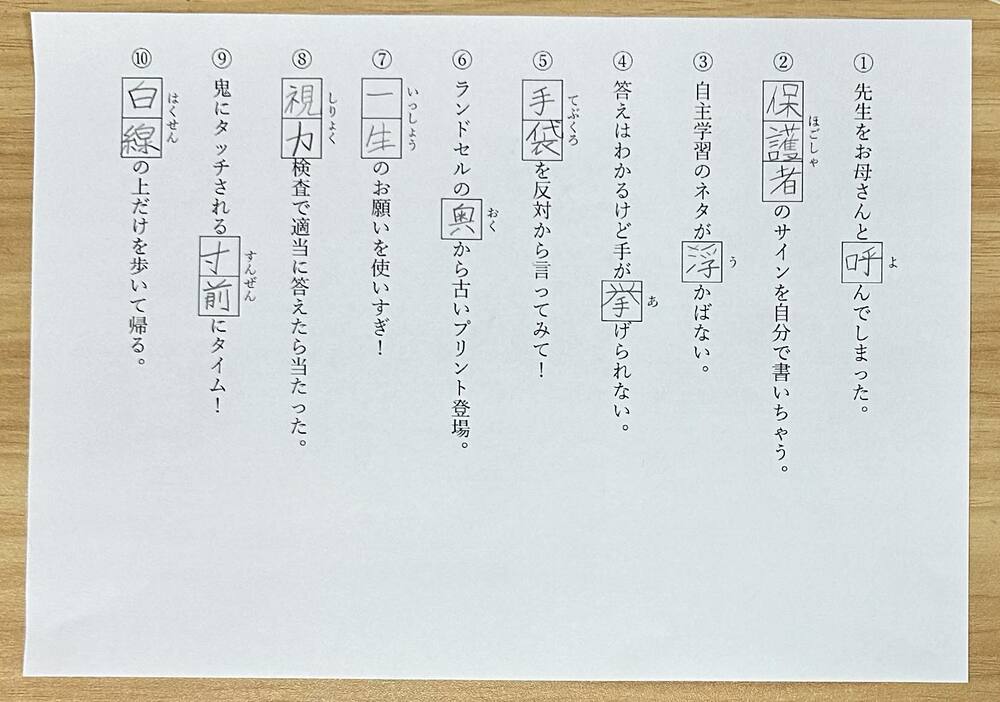 ① 先生をお母さんと呼んでしまった。
よ
② 保護者のサインを自分で書いちゃう。
ほごしゃ
③ 自主学習のネタが浮かばない。
う
④ 答えはわかるけど手が挙げられない。
あ
⑤ 手袋を反対から言ってみて！
てぶくろ
⑥ ランドセルの奥から古いプリント登場。
おく
⑦ 一生のお願いを使いすぎ！
いっしょう
⑧ 視力検査で適当に答えたら当たった。
しりょく
⑨ 鬼にタッチされる寸前にタイム！
すんぜん
⑩ 白線の上だけを歩いて帰る。
はくせん